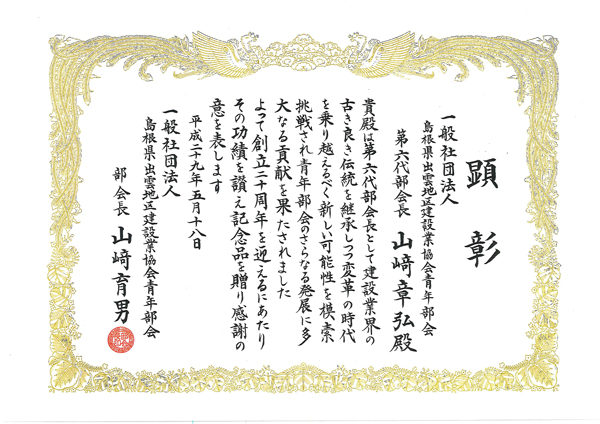 顕彰
一般社団法人
島根県出雲地区建設業協会青年部会
第六代部会長 山﨑章弘殿
貴殿は第六代部会長として建設業界の
古き良き伝統を継承しつつ変革の時代
を乗り越えるべく新しい可能性を模索
挑戦され青年部会のさらなる発展に多
大なる貢献を果たされました
よって創立二十周年を迎えるにあたり
その功績を讃え記念品を贈り感謝の
意を表します
平成二十九年五月十八日
一般社団法人
島根県出雲地区建設業協会青年部会
部会長 山﨑育男